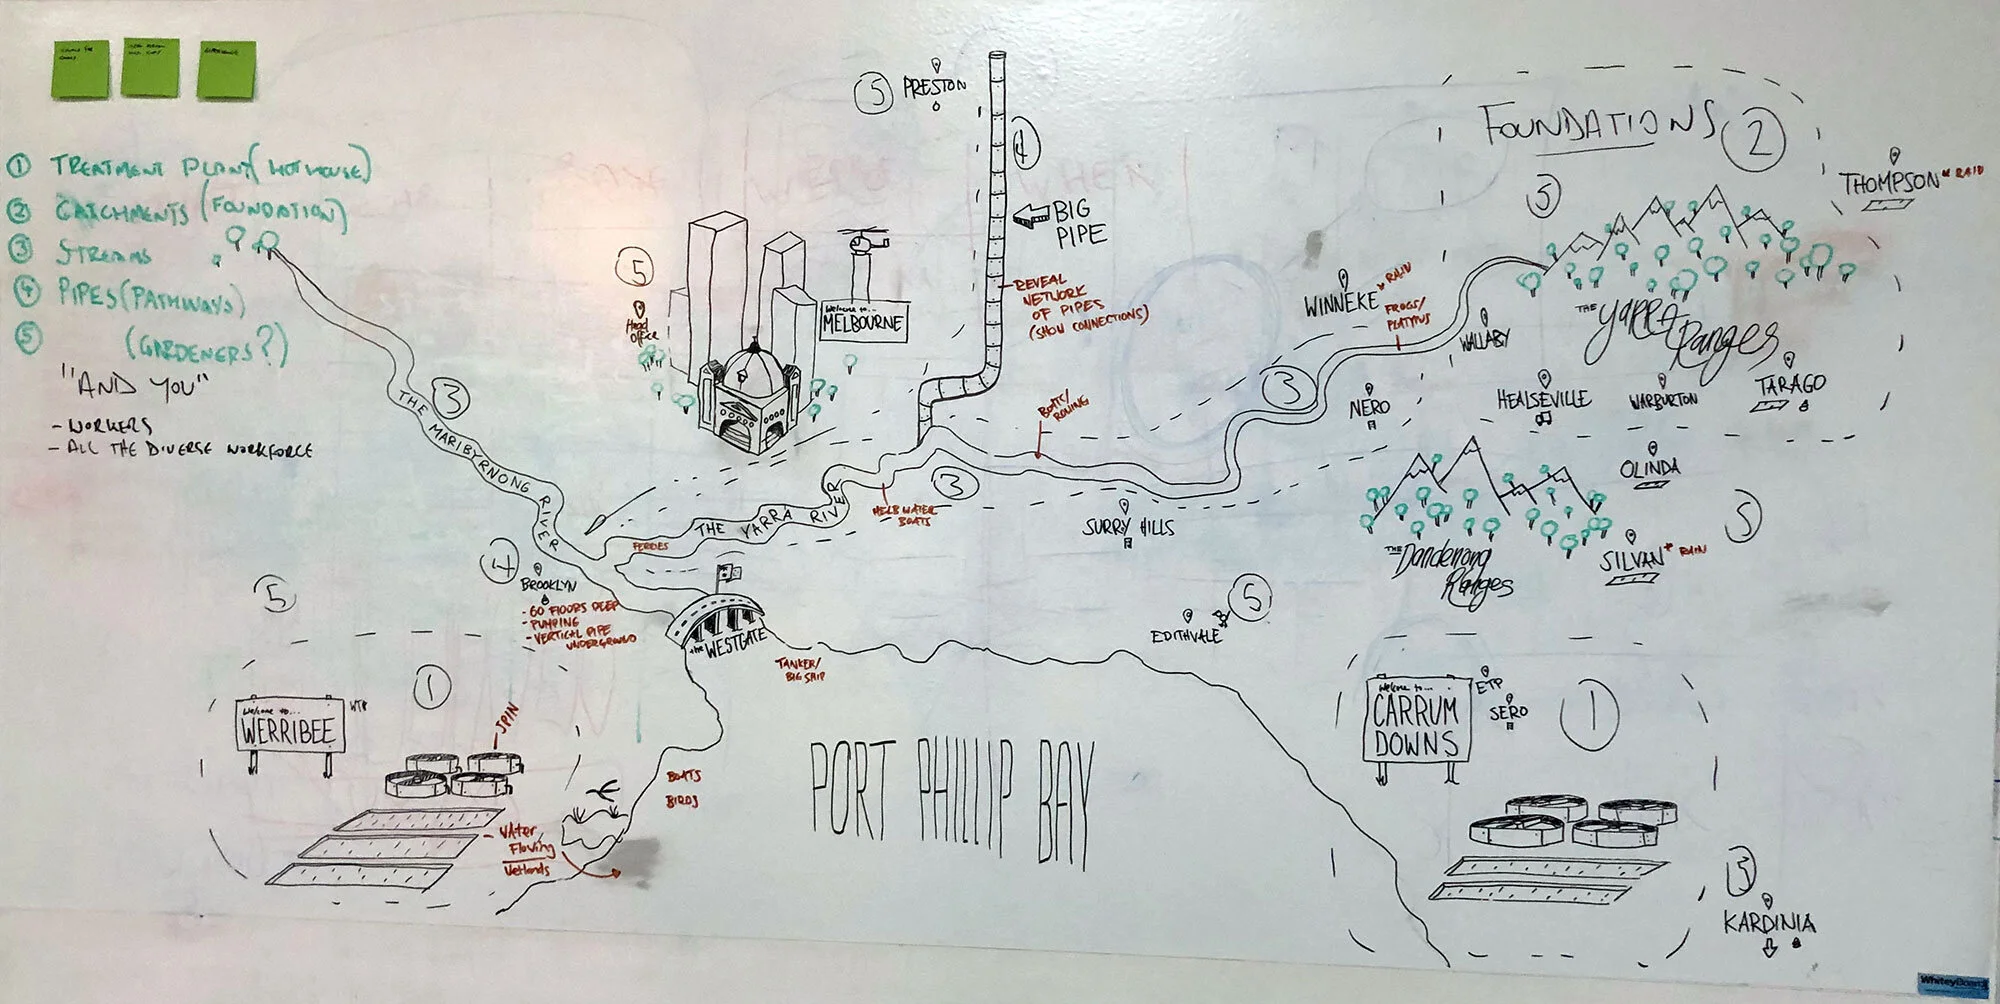 ① TREATMENT PLANT (HOTHOUSE)
② CATCHMENTS (FOUNDATION)
③ STREAMS
④ PIPES (PATHWAYS)
⑤ (GARDENERS?)
"AND YOU"
- WORKERS
- ALL THE DIVERSE WORKFORCE
5
PRESTON
4
BIG
PIPE
- REVEAL
NETWORK
OF PIPES
(SHOW CONNECTIONS)
FOUNDATIONS 2
THOMPSON * RAIN
5
5
Head
Office
Welcome to...
MELBOURNE
WINNEKE * RAIN
FROGS/
PLATYPUS
WALLABY
THE Yarra
Ranges
3
BOATS/
ROWING
NERO
HEALSEVILLE
WARBURTON
TARAGO
3
THE MARIBYRNONG RIVER
THE YARRA RIVER
3
MELB WATER
BOATS
FERRIES
SURRY HILLS
OLINDA
5
THE Dandenong
Ranges
SILVAN * RAIN
4
BROOKLYN
- 60 FLOORS DEEP
- PUMPING
- VERTICAL PIPE
UNDERGROUND
the WESTGATE
TANKER/
BIG SHIP
EDITHVALE
5
5
1
Welcome to...
WERRIBEE
WTP
SPIN
BOATS
BIRDS
WATER
Flowing
Wetlands
PORT PHILLIP BAY
Welcome to...
CARRUM
DOWNS
ETP
SERO
1
5
KARDINIA